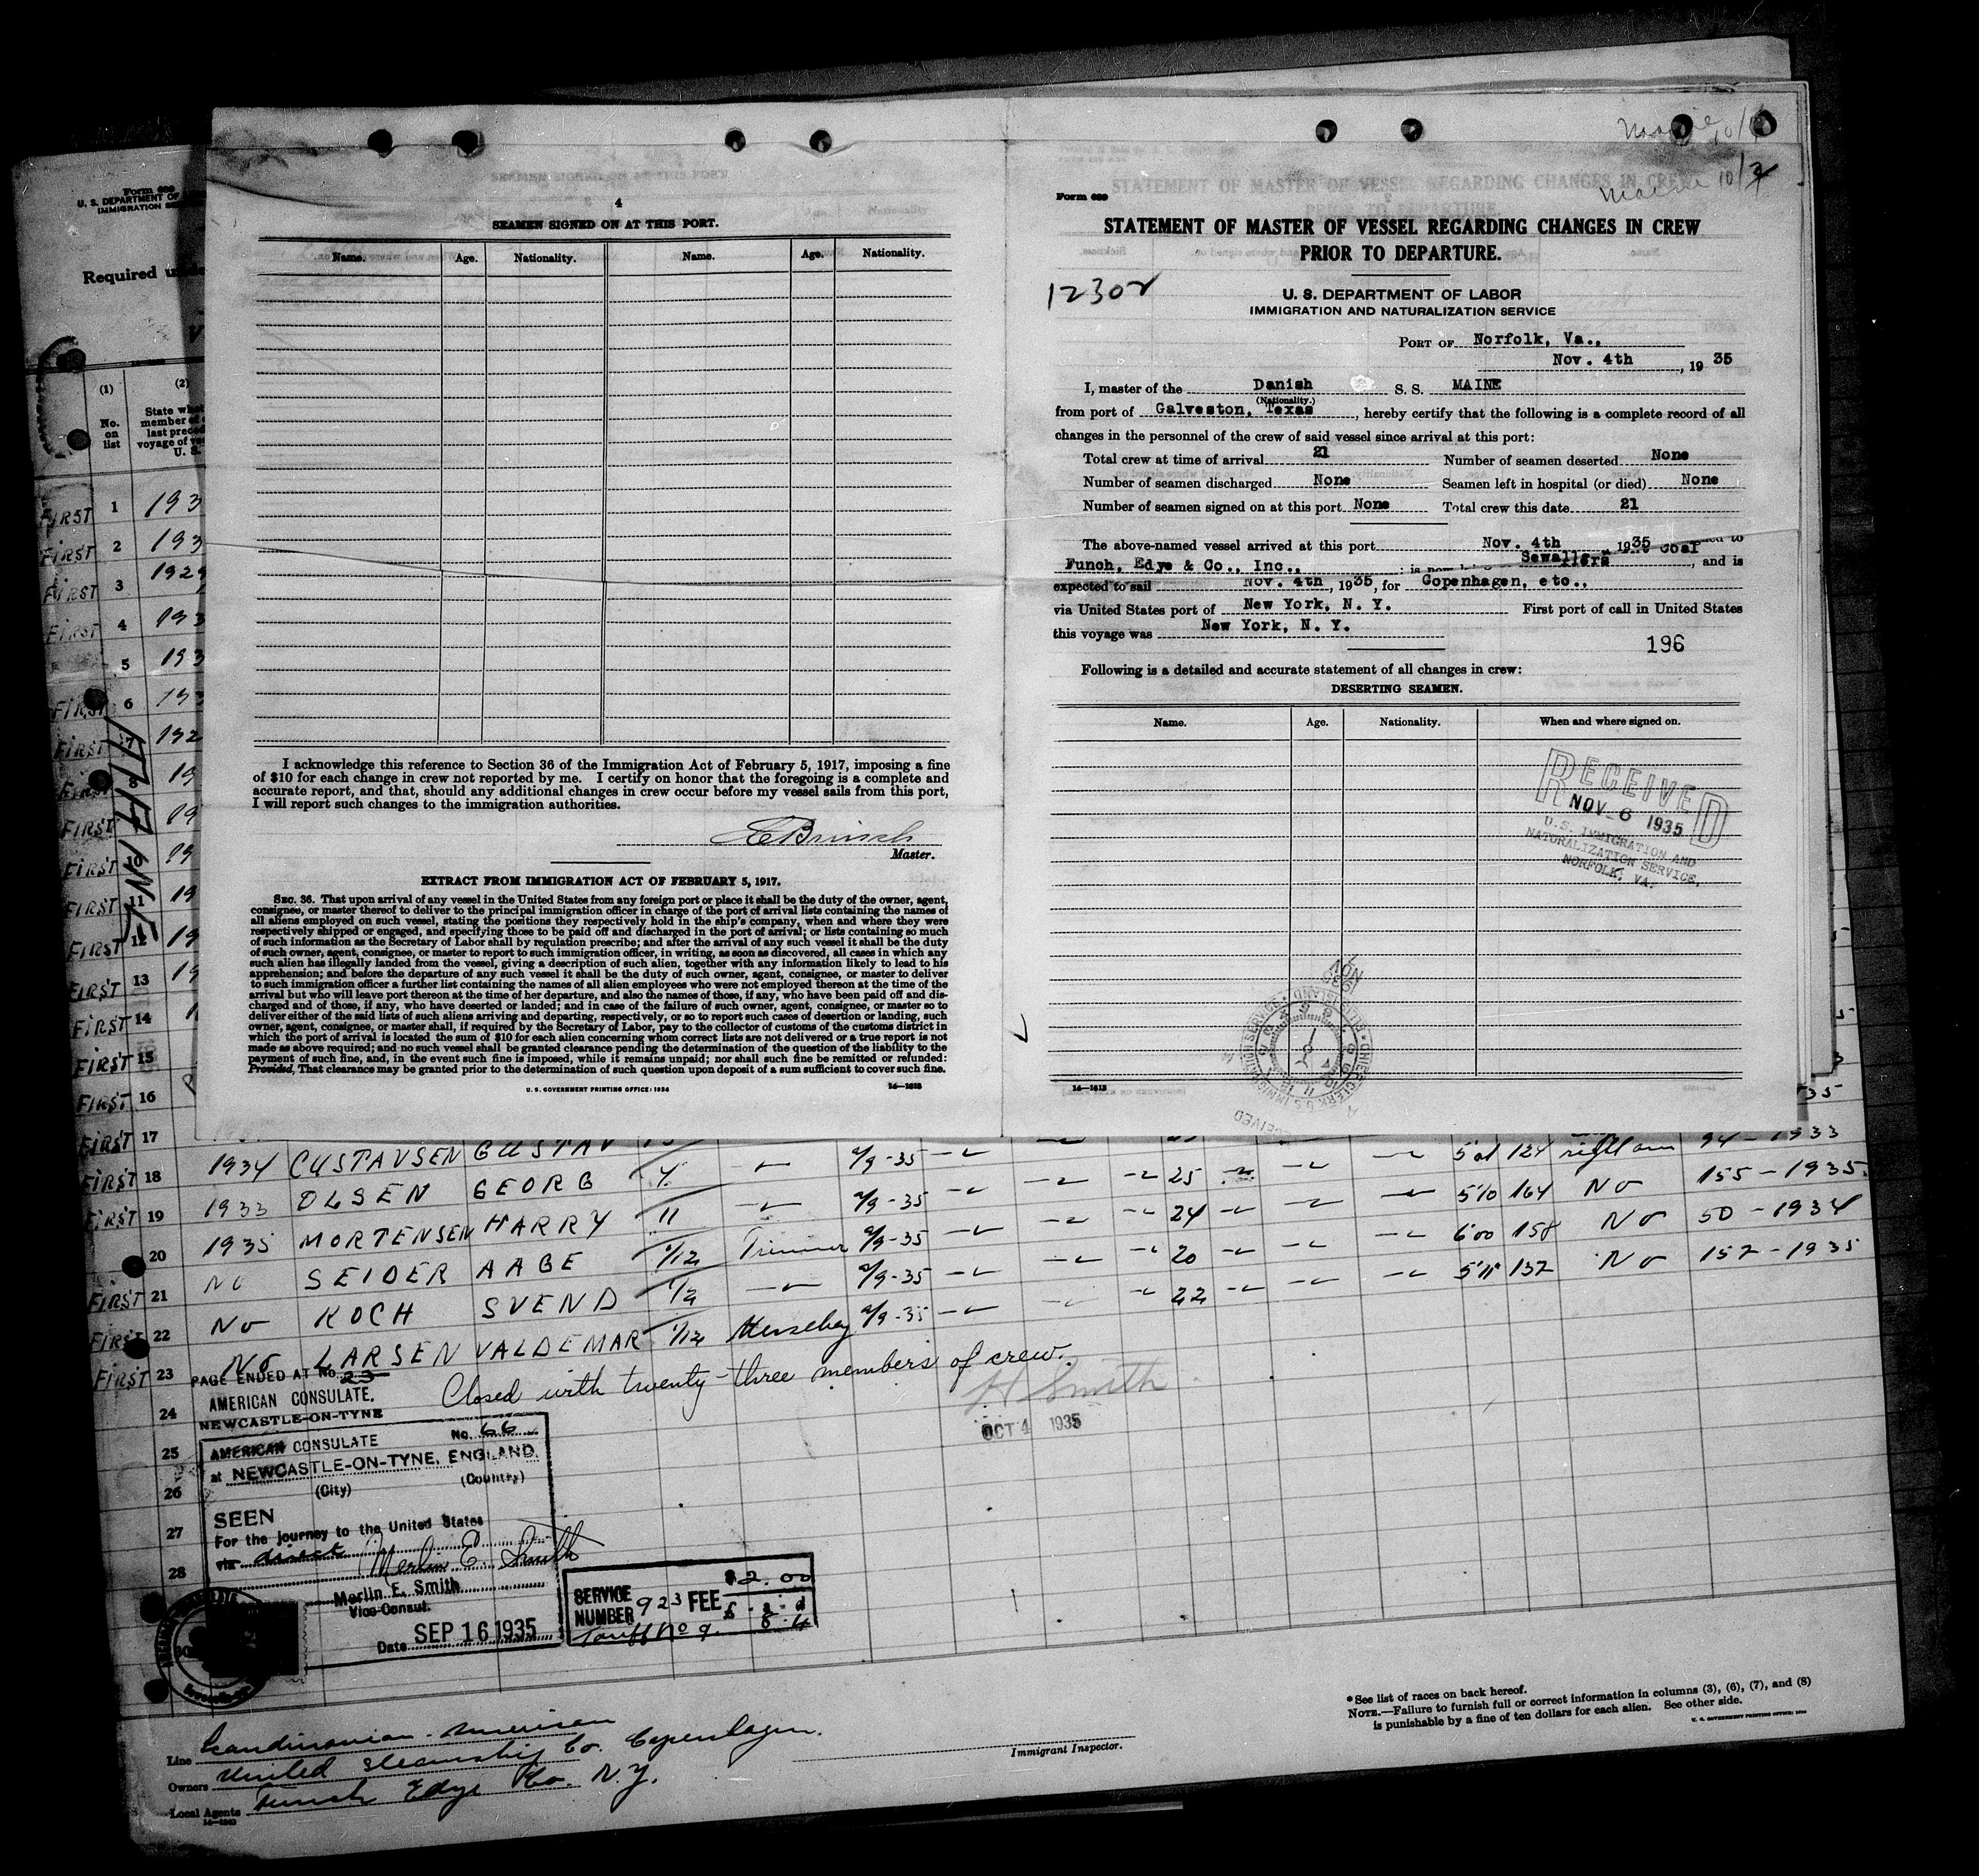 Form 689
U. S. DEPARTMENT OF
IMMIGRATION
Required
(1)
(2)
No.
on
list
State
member of
last
voyage of
U. S.
4
SEAMEN SIGNED ON AT THIS PORT.
Name. Age. Nationality. Name. Age. Nationality.
I acknowledge this reference to Section 36 of the Immigration Act of February 5, 1917, imposing a fine
of $10 for each change in crew not reported by me. I certify on honor that the foregoing is a complete and
accurate report, and that, should any additional changes in crew occur before my vessel sails from this port,
I will report such changes to the immigration authorities.
Master.
EXTRACT FROM IMMIGRATION ACT OF FEBRUARY 5, 1917.
SEC. 36. That upon arrival of any vessel in the United States from any foreign port or place it shall be the duty of the owner, agent,
consignee, or master thereof to deliver to the principal immigration officer in charge of the port of arrival lists containing the names of
all aliens employed on such vessel, stating the positions they respectively hold in the ship's company, when and where they were
respectively shipped or engaged, and specifying those to be paid off and discharged in the port of arrival; or lists containing so much
of such information as the Secretary of Labor shall by regulation prescribe; and after the arrival of any such vessel it shall be the duty
of such owner, agent, consignee, or master to report to such immigration officer, in writing, as soon as discovered, all cases in which any
such alien has illegally landed from the vessel, giving a description of such alien, together with any information likely to lead to his
apprehension; and before the departure of any such vessel it shall be the duty of such owner, agent, consignee, or master to deliver
to such immigration officer a further list containing the names of all alien employees who were not employed thereon at the time of the
arrival but who will leave port thereon at the time of her departure, and also the names of those, if any, who have been paid off and dis-
charged and of those, if any, who have deserted or landed; and in case of the failure of such owner, agent, consignee, or master so to
deliver either of the said lists of such aliens arriving and departing, respectively, or so to report such cases of desertion or landing, such
owner, agent, consignee, or master shall, if required by the Secretary of Labor, pay to the collector of customs of the customs district in
which the port of arrival is located the sum of $10 for each alien concerning whom correct lists are not delivered or a true report is not
made as above required; and no such vessel shall be granted clearance pending the determination of the question of the liability to the
payment of such fine, and, in the event such fine is imposed, while it remains unpaid; nor shall such fine be remitted or refunded:
Provided, That clearance may be granted prior to the determination of such question upon deposit of a sum sufficient to cover such fine.
U. S. GOVERNMENT PRINTING OFFICE: 1934 14—1613
Maine 10/
Form 689
STATEMENT OF MASTER OF VESSEL REGARDING CHANGES IN CREW
PRIOR TO DEPARTURE.
12302
U. S. DEPARTMENT OF LABOR
IMMIGRATION AND NATURALIZATION SERVICE
PORT OF Norfolk, Va.,
Nov. 4th, 1935
I, master of the Danish S. S. MAINE
(Nationality.)
from port of Galveston, Texas, hereby certify that the following is a complete record of all
changes in the personnel of the crew of said vessel since arrival at this port:
Total crew at time of arrival 21 Number of seamen deserted None
Number of seamen discharged None Seamen left in hospital (or died) None
Number of seamen signed on at this port None Total crew this date 21
The above-named vessel arrived at this port Nov. 4th 1935
Funch, Edye & Co., Inc., Sewalls, and is
expected to sail Nov. 4th, 1935, for Copenhagen, etc.,
via United States port of New York, N. Y. First port of call in United States
this voyage was New York, N. Y.
196
Following is a detailed and accurate statement of all changes in crew:
DESERTING SEAMEN.
Name. Age. Nationality. When and where signed on.
RECEIVED
NOV 6 1935
U.S. IMMIGRATION AND
NATURALIZATION SERVICE,
NORFOLK, VA.
14—1613
FIRST 1 193
FIRST 2 193
FIRST 3 1929
FIRST 4 193
5 193
FIRST 6 193
FIRST 7 192
FIRST 8 19
FIRST 19
FIRST 10 19
FIRST 11 19
FIRST 12 19
FIRST 13 19
FIRST 14
FIRST 15
FIRST 16
FIRST 17
FIRST 18 1934 GUSTAVSEN GUSTAV 9/9-35 124 right arm 94-1933
FIRST 19 1933 OLSEN GEORG 9/9-35 25 510 164 No 155-1935
20 1935 MORTENSEN HARRY 11 Trimmer 9/9-35 24 600 158 No 50-1934
FIRST 21 No SEIDER AAGE 9/9-35 20 511 137 No 157-1935
FIRST 22 No KOCH SVEND 1/2 9/9-35 22
FIRST 23 No LARSEN VALDEMAR 1/12 Messeboy 9/9-35
24
25
26
27
28
PAGE ENDED AT No. 23
AMERICAN CONSULATE,
NEWCASTLE-ON-TYNE
Closed with twenty-three members of crew.
H Smith
OCT 4 1935
AMERICAN CONSULATE No. 66
at NEWCASTLE-ON-TYNE, ENGLAND.
(City) (Country)
SEEN
For the journey to the United States
via direct Merlin E. Smith
Merlin E. Smith
Vice-Consul.
Date SEP 16 1935
SERVICE NUMBER 923 FEE $2.00
£ . s . d
8.4
Tariff No 9.
Line Scandinavian-American
Owners United Steamship Co. Copenhagen.
Local Agents Funch Edye Co. N.Y.
Immigrant Inspector.
*See list of races on back hereof.
NOTE.—Failure to furnish full or correct information in columns (3), (6), (7), and (8)
is punishable by a fine of ten dollars for each alien. See other side.